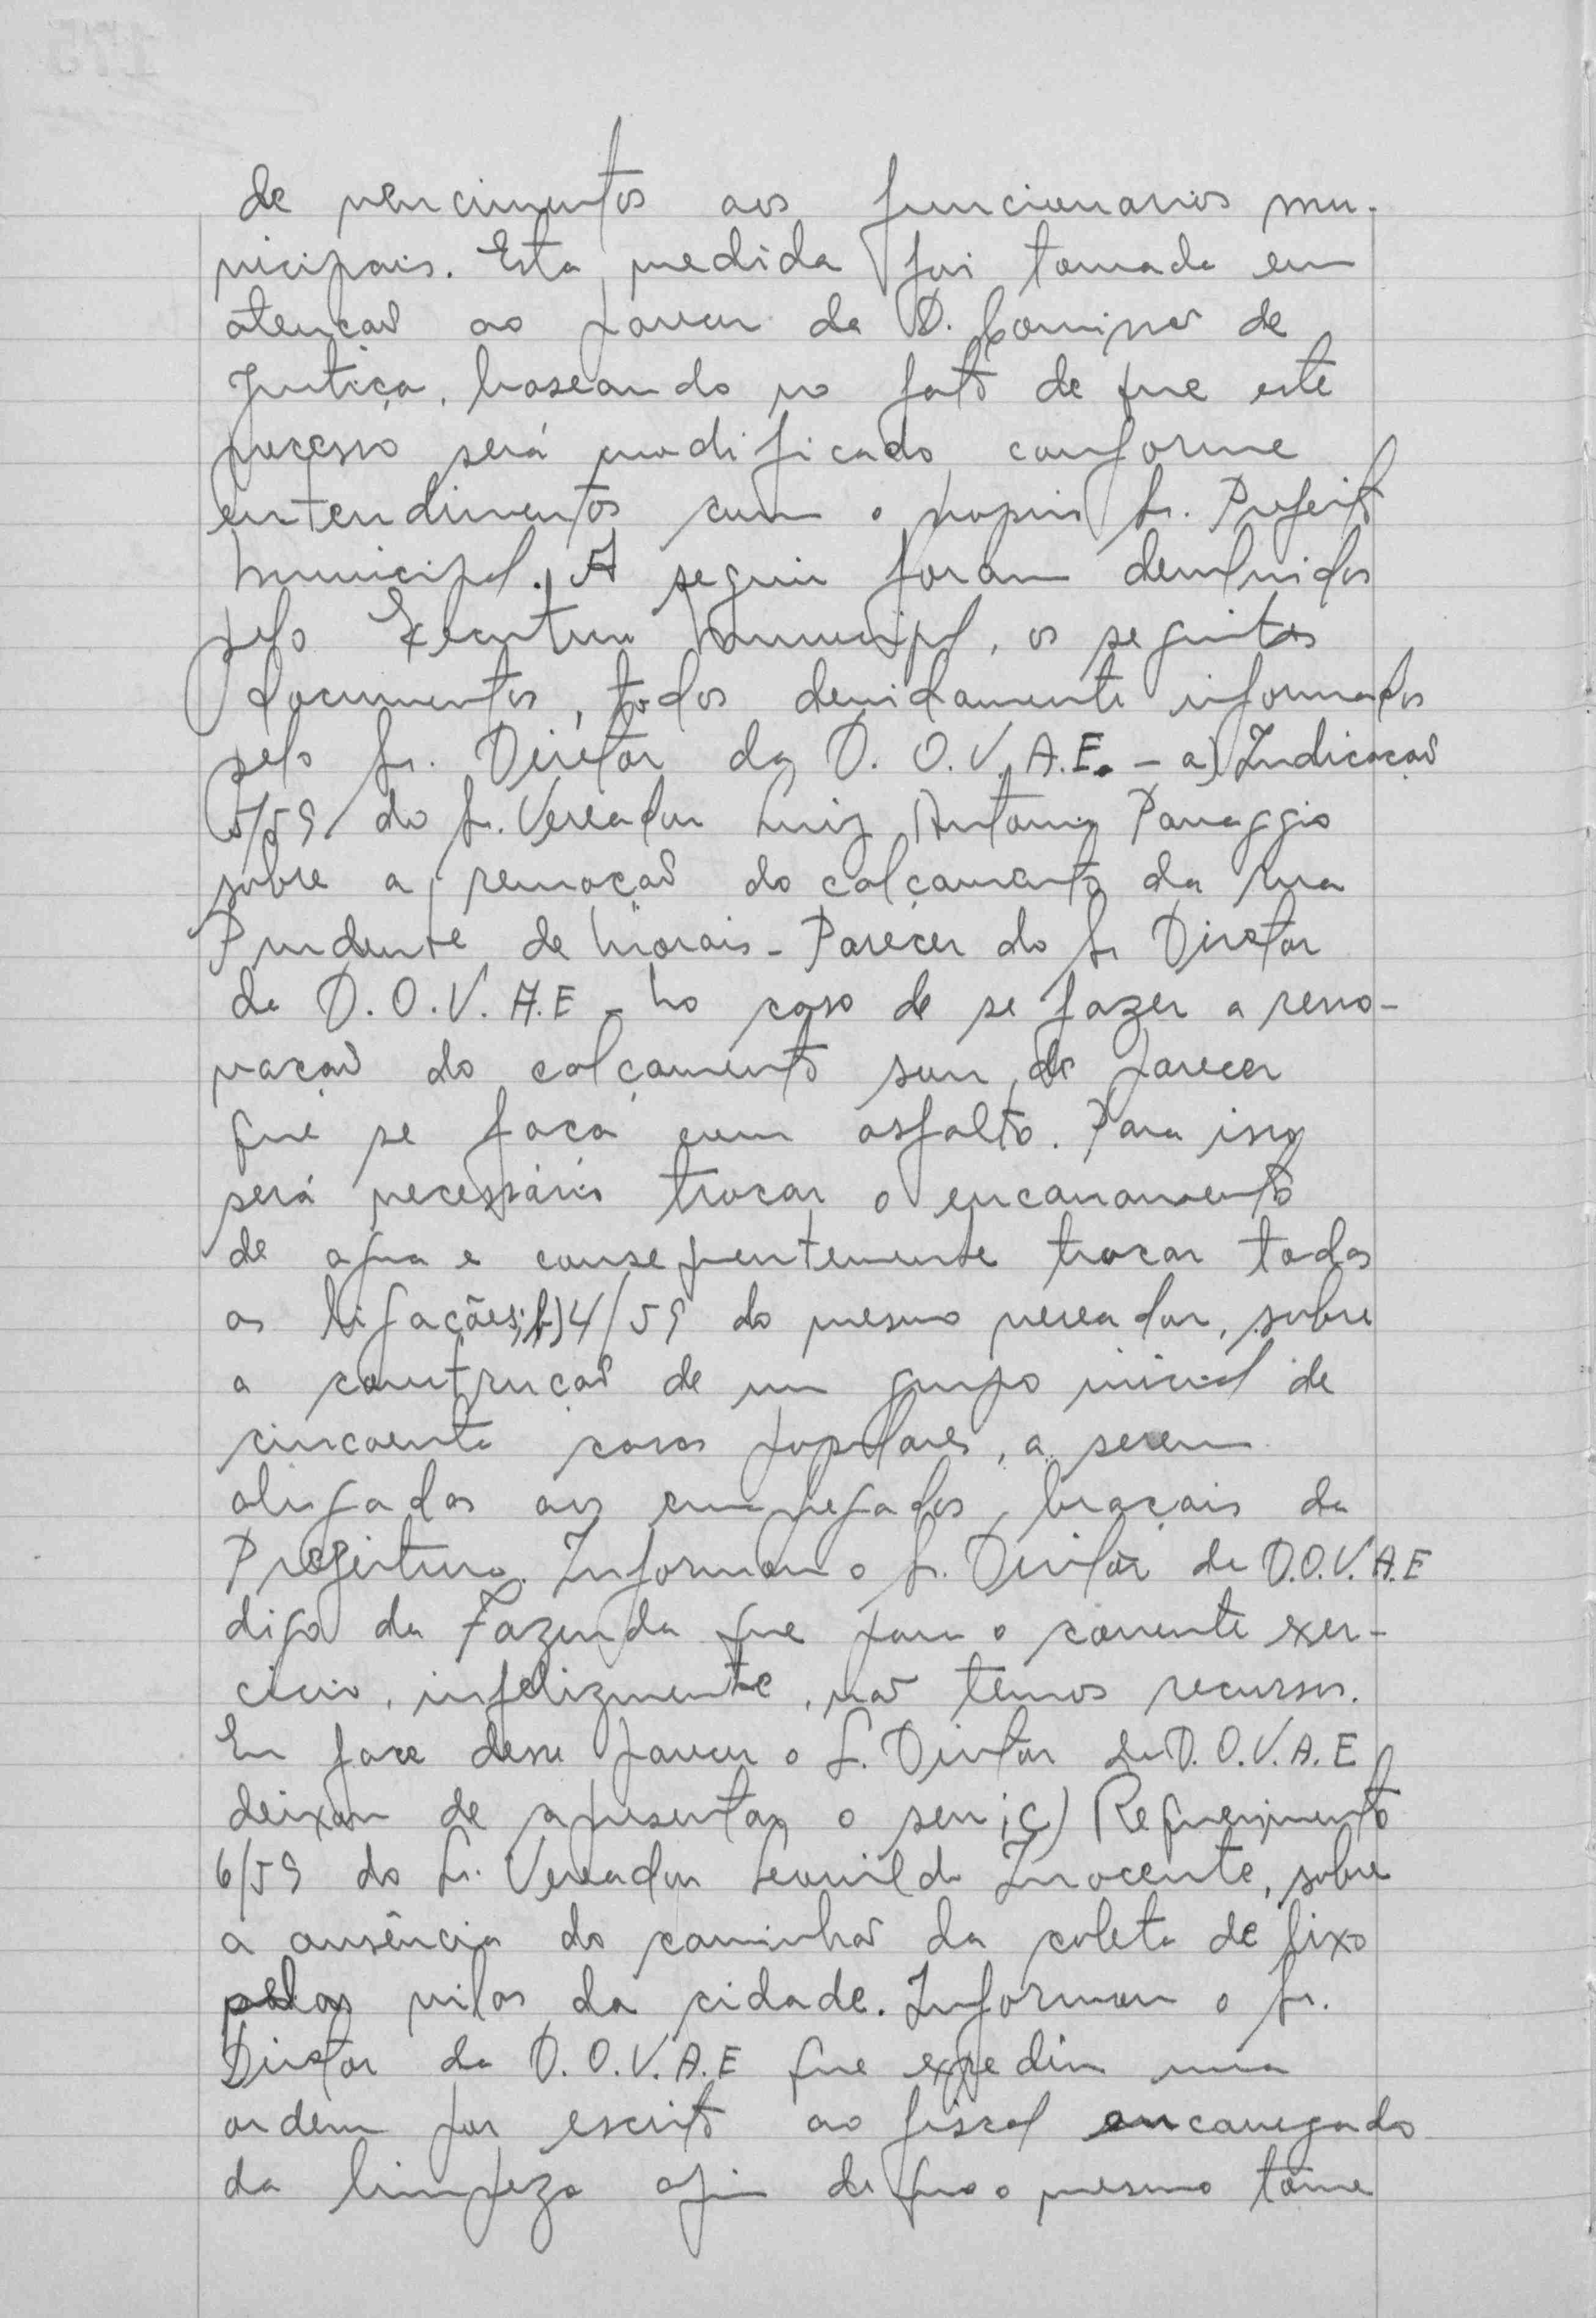 de vencimentos aos funcionarios mu-
nicipais. Esta medida foi tomada em
atenção ao parecer da D. Comissão de
Justiça, baseando no fato de que este
processo será modificado, conforme
entendimentos com o proprio Sr. Prefeito
Municipal. A seguir foram devolvidos
pelo Executivo Municipal, os seguintes
documentos, todos devidamente informados
pelo Sr. Diretor da D. O. V. A. E. - a) Indicação
5/59 do Sr. Vereador Luiz Antonio Panaggio
sobre a remoção do calçamento da rua
Prudente de Morais - Parecer do Sr Diretor
da D. O. V. A. E - No caso de se fazer a reno-
vação do calçamento sou de parecer
que se faça com asfalto. Para isso
será necessário trocar o encanamento
de agua e consequentemente trocar todas
as ligações; b) 4/59 do mesmo vereador, sobre
a construção de um grupo inicial de
cincoenta casas populares, a serem
alugadas aos empregados braçais da
Prefeitura. Informou o Sr. Diretor da D.O.V.A.E
digo da Fazenda que para o corrente exer-
cicio, infelizmente, não temos recursos.
Em face desse parecer o S. Diretor da D. O. V. A. E
deixou de apresentar o seu; c) Requerimento
6/59 do Sr. Vereador Leonildo Inocente, sobre
a ausência do caminhão da coleta de lixo
pelas vilas da cidade. Informou o Sr.
Diretor da D. O. V. A. E que expediu uma
ordem por escrito ao fiscal encarregado
da limpeza afim de que o mesmo tome